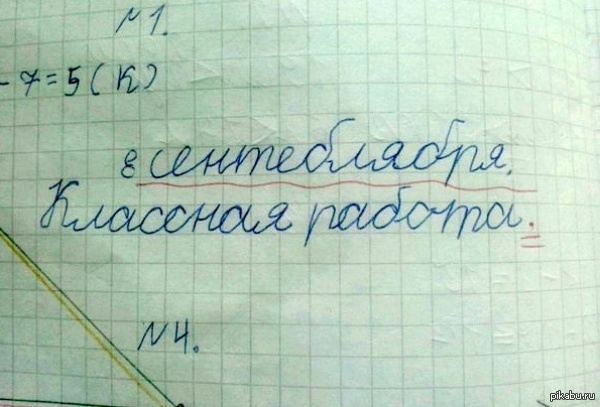 №1.
- 7 = 5 (К)
8 сентеблября.
Классная работа.
№4.
pikabu.ru